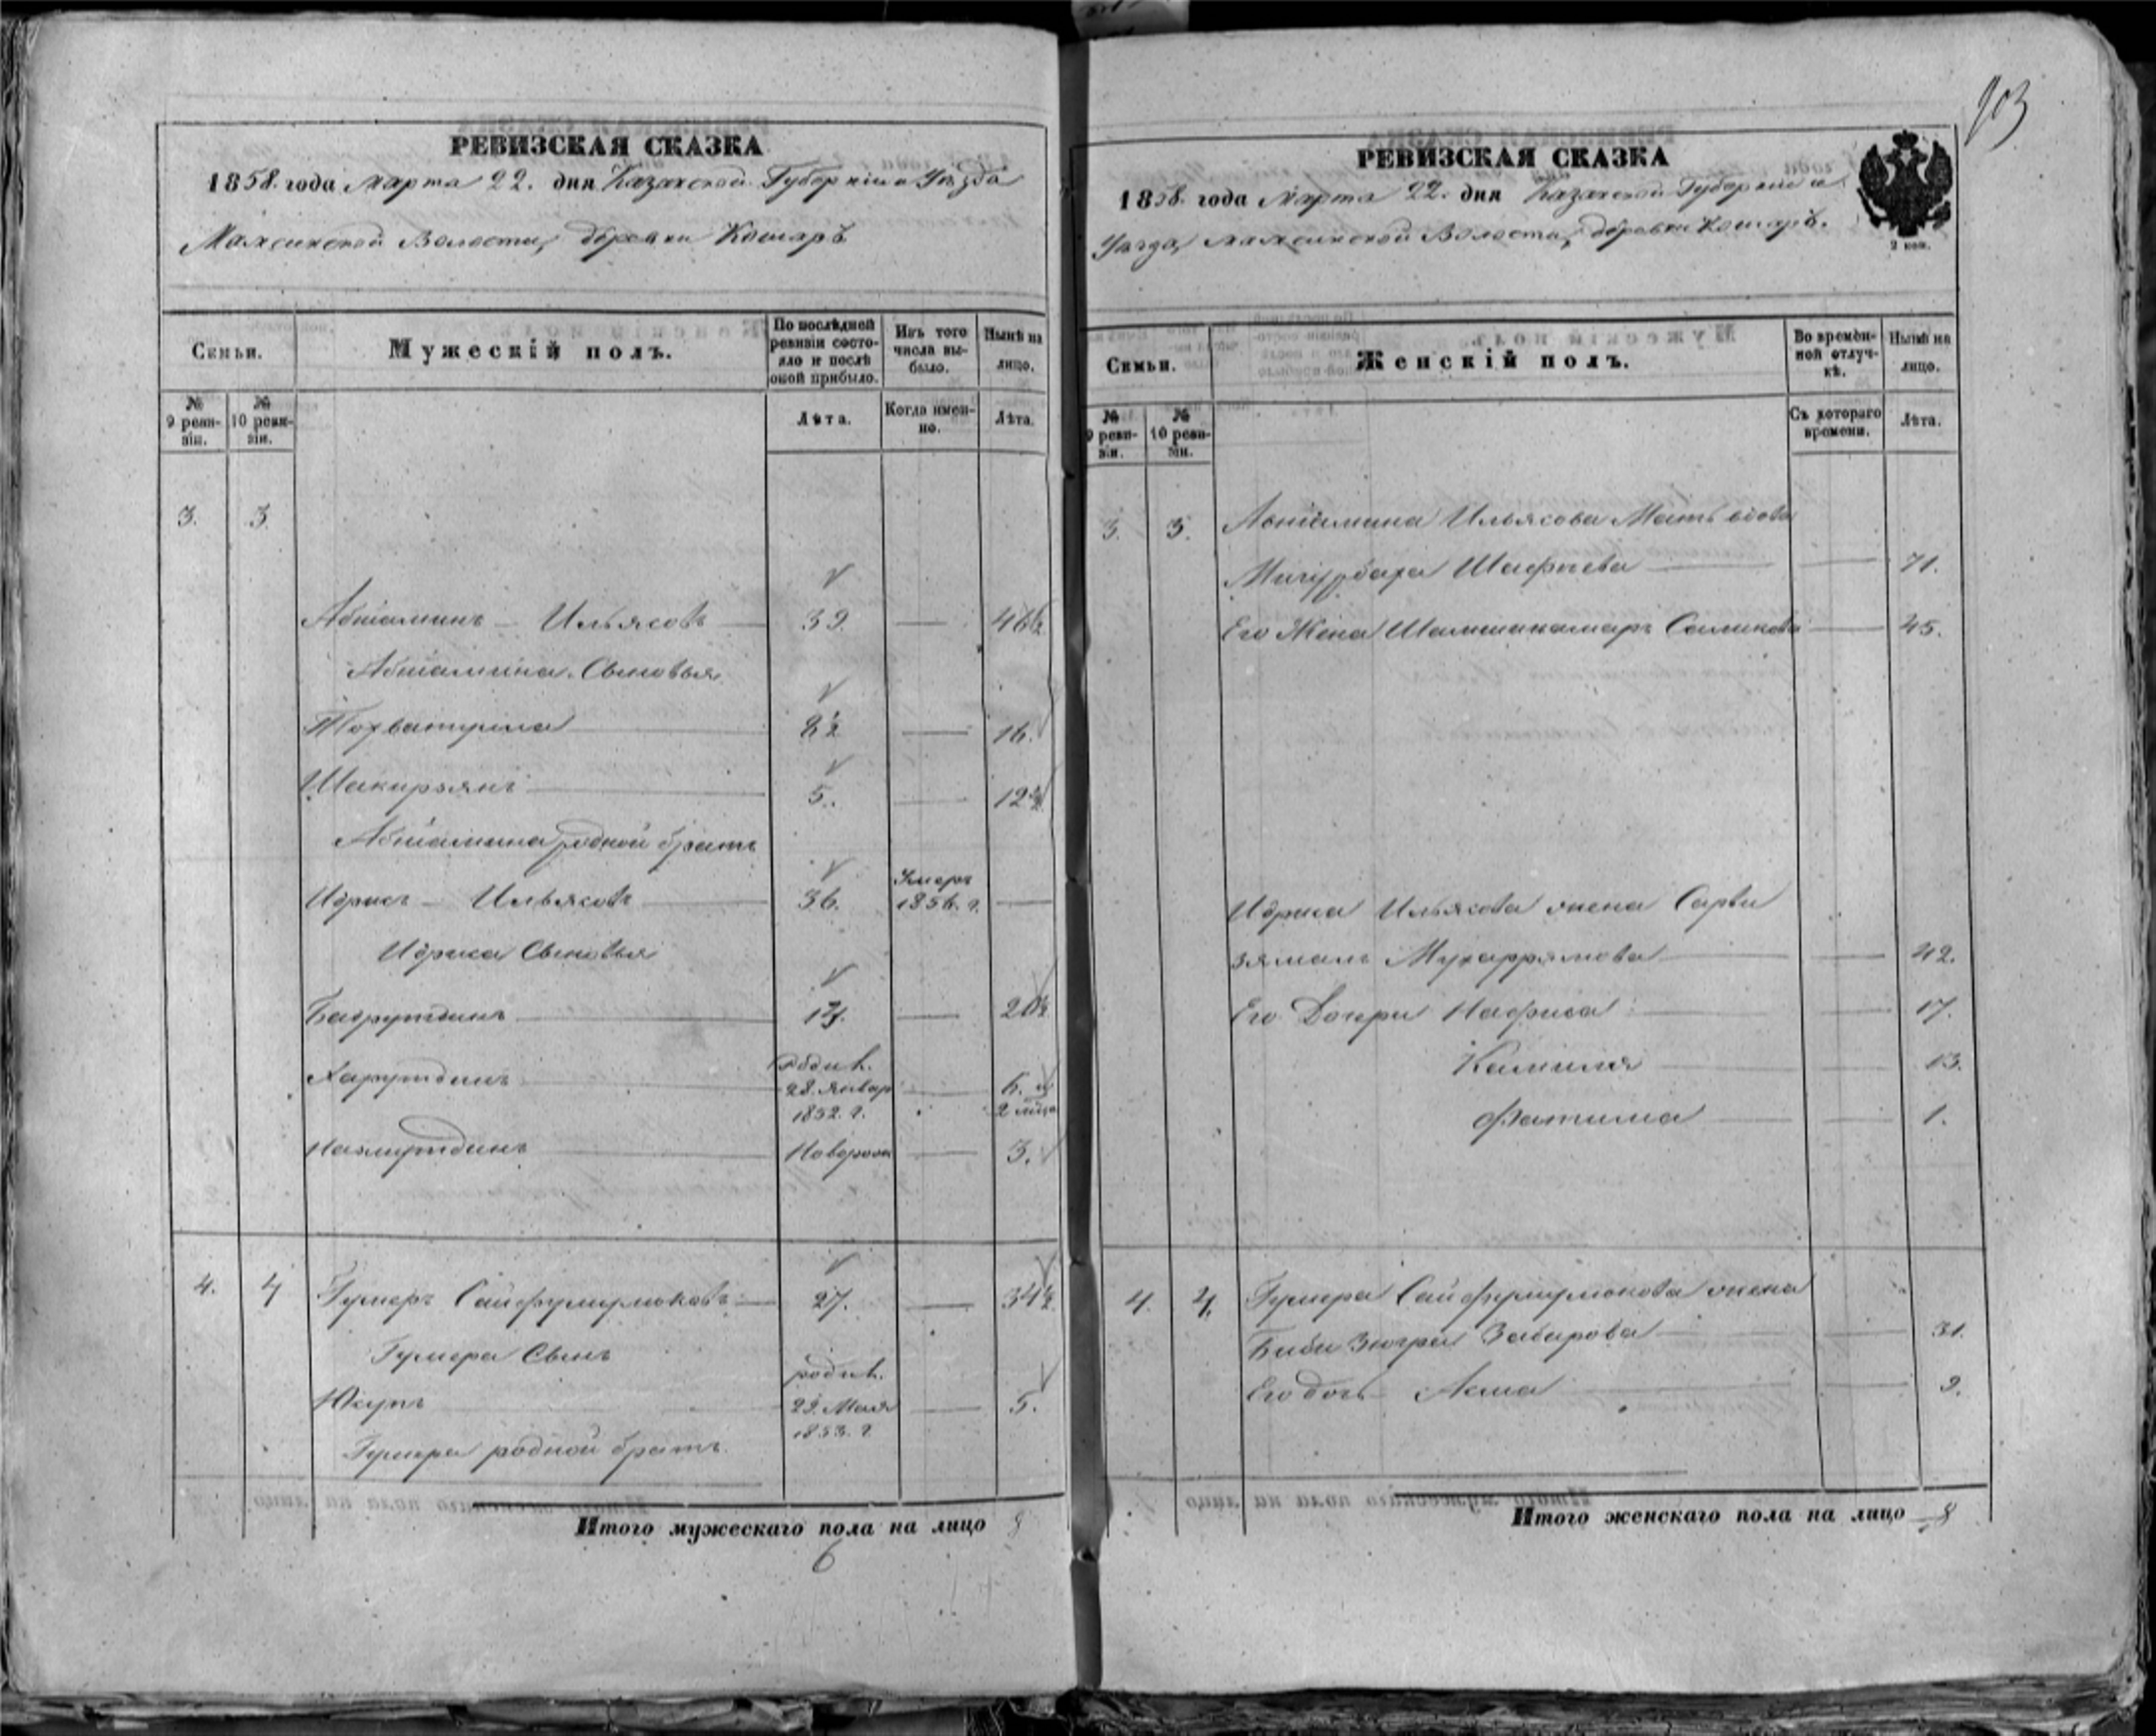 903
РЕВИЗСКАЯ СКАЗКА
1858. года Марта 22. дня Казанской Губерніи и Уѣзда
Мамсинской Волости, деревни Кошаръ
Семьи.
Мужескій полъ.
По послѣдней ревизіи состояло и послѣ оной прибыло.
Изъ того числа выбыло.
Нынѣ на лицо.
№ 9 ревизіи.
№ 10 ревизіи.
Лѣта.
Когда именно.
Лѣта.
3. 3
Абтіаминъ — Ильясовъ — 39. — 46½
Абтіамина Сыновья
8½ — 16.
Шакирьянъ — 5. — 12½
Абтіамина родной братъ
Идрисъ — Ильясовъ — 36. Умеръ 1856. г. —
Идриса Сыновья
Бадрутдинъ — 13. — 20½
родив. 28. Январ 1852. г. — 6. и 2 мѣся
3.
4. 4 Гумеръ Сайфулмулюковъ — 27. — 34½
Гумера Сынъ
Юкупъ родив. 23. Мая 1853. г. — 5.
Гумера родной братъ
Итого мужескаго пола на лицо 8
6
РЕВИЗСКАЯ СКАЗКА
1858. года Марта 22. дня Казанской Губерніи и
Уѣзда, Мамсинской Волости, деревни Кошаръ.
2 коп.
Семьи.
Женскій полъ.
Во временной отлучкѣ.
Нынѣ на лицо.
№ 9 ревизіи.
№ 10 ревизіи.
Съ котораго времени.
Лѣта.
3. 3. Абтіамина Ильясова Мать вдова
Шафѣева — — 71.
Его Жена Шамшикамаръ Салихова — 45.
Идриса Ильясова жена Сарви
зямалъ Мухаррямова — — 42.
Его Дочери Нафиса — — 17.
Камиля — — 13.
Фатима — — 1.
4. 4. Гумера Сайфулмулюкова жена
Биби Зюгра Забарова — — 31.
Его дочь Асма — — 9.
Итого женскаго пола на лицо 8